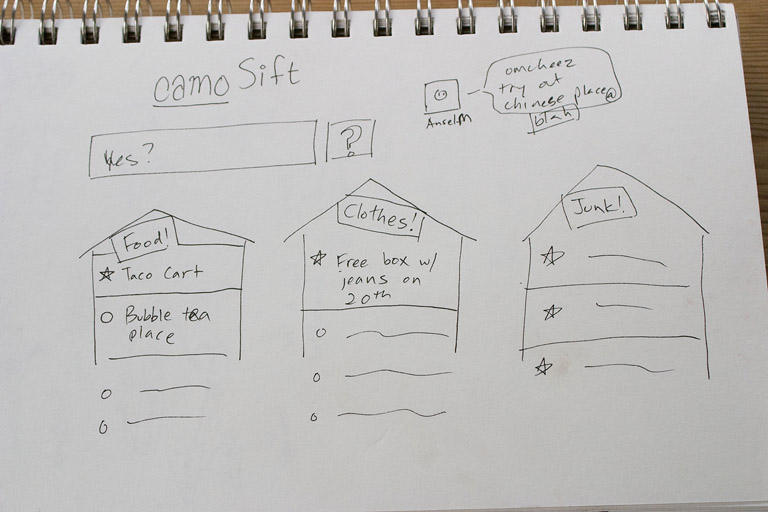 camo Sift
omcheez
try out
chinese place @
blah
AnselM
Yes?
?
Food!
Taco Cart
Bubble tea
place
Clothes!
Free box w/
jeans on
20th
Junk!